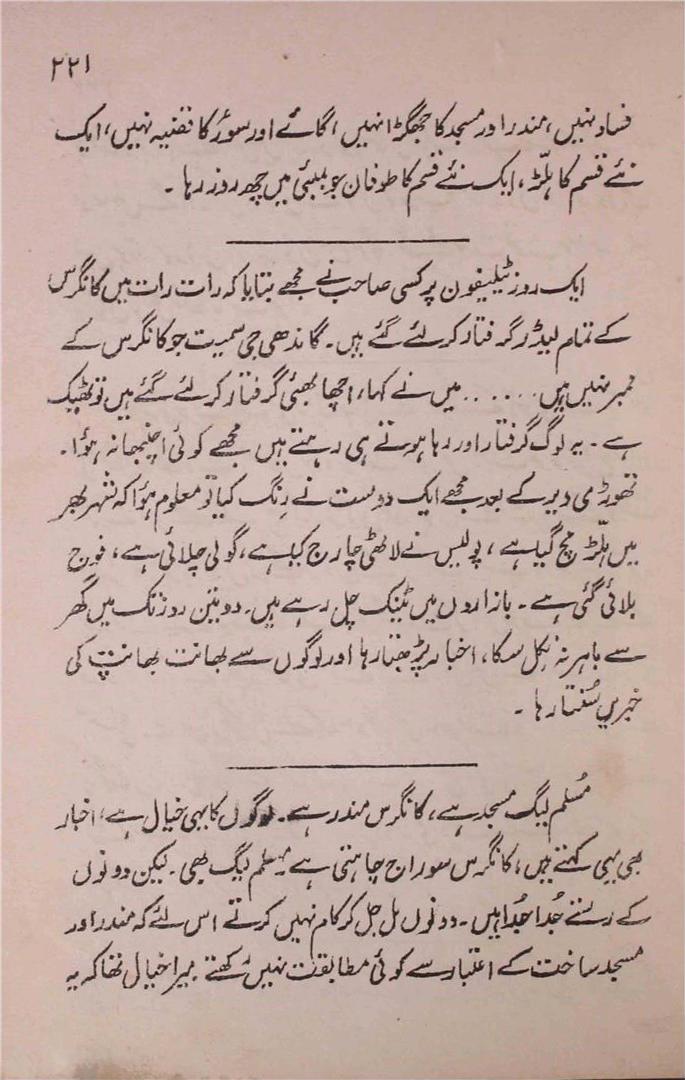 ۲۲۱
فساد نہیں، مندر اور مسجد کا جھگڑا نہیں، گائے اور سوڑ کا قضیہ نہیں، ایک
نئے قسم کا ہلّڑ، ایک نئے قسم کا طوفان جو بمبئی میں چھ روز رہا۔
ایک روز ٹیلیفون پر کسی صاحب نے مجھے بتایا کہ رات رات میں کانگرس
کے تمام لیڈر گرفتار کر لئے گئے ہیں۔ گاندھی جی سمیت جو کانگرس کے
ممبر نہیں ہیں...... میں نے کہا، اچھا بھئی گرفتار کر لئے گئے ہیں تو ٹھیک
ہے۔ یہ لوگ گرفتار اور رہا ہوتے ہی رہتے ہیں مجھے کوئی اچنبھا نہ ہؤا۔
تھوڑی دیر کے بعد مجھے ایک دوست نے رِنگ کیا تو معلوم ہؤا کہ شہر بھر
میں ہلّڑ مچ گیا ہے، پولیس نے لاٹھی چارج کیا ہے، گولی چلائی ہے، فوج
بلائی گئی ہے۔ بازاروں میں ٹینک چل رہے ہیں۔ دو تین روز تک میں گھر
سے باہر نہ نِکل سکا، اخبار پڑھتا رہا اور لوگوں سے بھانت بھانت کی
خبریں سُنتا رہا۔
مُسلم لیگ مسجد ہے، کانگرس مندر ہے۔ لوگوں کا یہی خیال ہے، اخبار
بھی یہی کہتے ہیں، کانگرس سوراج چاہتی ہے مسلم لیگ بھی۔ لیکن دونوں
کے رستے جُدا جُدا ہیں۔ دونوں مل جل کر کام نہیں کرتے اس لئے کہ مندر اور
مسجد ساخت کے اعتبار سے کوئی مطابقت نہیں رکھتے میرا خیال تھا کہ یہ